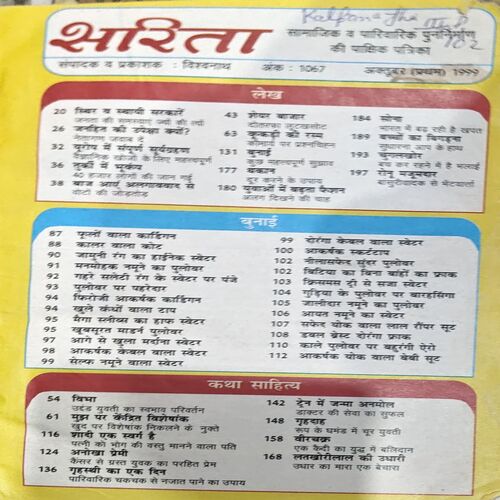 Kalpana Jha
सरिता
सामाजिक व पारिवारिक पुनर्निर्माण
की पाक्षिक पत्रिका
संपादक व प्रकाशक : विश्वनाथ अंक : 1067 अक्टूबर (प्रथम) 1999
लेख
20 स्थिर व स्थायी सरकारें
जनता की समस्याएं ज्यों की त्यों
26 जनहित की उपेक्षा क्यों?
नेतागण जवाब दें
32 यूरोप में संपूर्ण सूर्यग्रहण
वैज्ञानिक खोजों के लिए महत्वपूर्ण
36 तुर्की में भूकंप
40 हजार लोगों की जान गई
38 बाज आएं अलगाववाद से
वोटों की जोड़तोड़
43 शेयर बाजार
दोतरफा लूटखसोट
63 कूकड़ी की रस्म
कौमार्य पर प्रश्नचिह्न
131 बुनाई
कुछ महत्वपूर्ण सुझाव
177 थकान
दूर करने के उपाय
180 युवाओं में बढ़ता फैशन
अलग दिखने की चाह
184 सोना
भारत में बढ़ रही है खपत
189 बच्चों का चिढ़ना
सुधारना आप के हाथ
193 चुगलखोर
बच कर रहने में है भलाई
197 रोनू मजूमदार
बांसुरीवादक से भेंटवार्त्ता
बुनाई
87 फूलों वाला कार्डिगन
88 कालर वाला कोट
90 जामुनी रंग का हाईनेक स्वेटर
91 मनमोहक नमूने का पुलोवर
92 गहरे सलेटी रंग के स्वेटर पर पंजे
93 पुलोवर पर पहरेदार
94 फिरोजी आकर्षक कार्डिगन
94 खुले कंधों वाला टाप
95 मैगा स्लीव्स का हाफ स्वेटर
95 खूबसूरत मार्डन पुलोवर
97 आगे से खुला मर्दाना स्वेटर
98 आकर्षक केबल वाला स्वेटर
99 सेल्फ नमूने वाला स्वेटर
99 दोरंगा केबल वाला स्वेटर
100 आकर्षक स्कर्टटाप
102 नीलासफेद सुंदर पुलोवर
102 बिटिया का बिना बांहों का फ्राक
103 क्रिसमस ट्री से सजा स्वेटर
104 गुड़िया के पुलोवर पर बारहसिंगा
105 जालीदार नमूने का पुलोवर
106 आयत नमूने का स्वेटर
107 सफेद योक वाला लाल रौंपर सूट
108 डबल ब्रेस्ट दोरंगा फ्राक
110 काले पुलोवर पर बहुरंगी ऐरो
112 आकर्षक योक वाला बेबी सूट
कथा साहित्य
54 विभा
उद्दंड युवती का स्वभाव परिवर्तन
61 मुझ पर केंद्रित विशेषांक
खुद पर विशेषांक निकलने के नुक्ते
116 शादी एक स्वर्ग है
पत्नी को भोग की वस्तु मानने वाला पति
124 अनोखा प्रेमी
कैंसर से ग्रस्त युवक का परहित प्रेम
136 गृहस्थी का एक दिन
पारिवारिक चकचक से नजात पाने का उपाय
142 ट्रेन में जन्मा अनमोल
डाक्टर की सेवा का सुफल
148 गृहदाह
रूप के घमंड में चूर युवती
158 वीरचक्र
एक कैदी का युद्ध में बलिदान
168 लतखोरीलाल की उधारी
उधार का मारा एक बेचारा